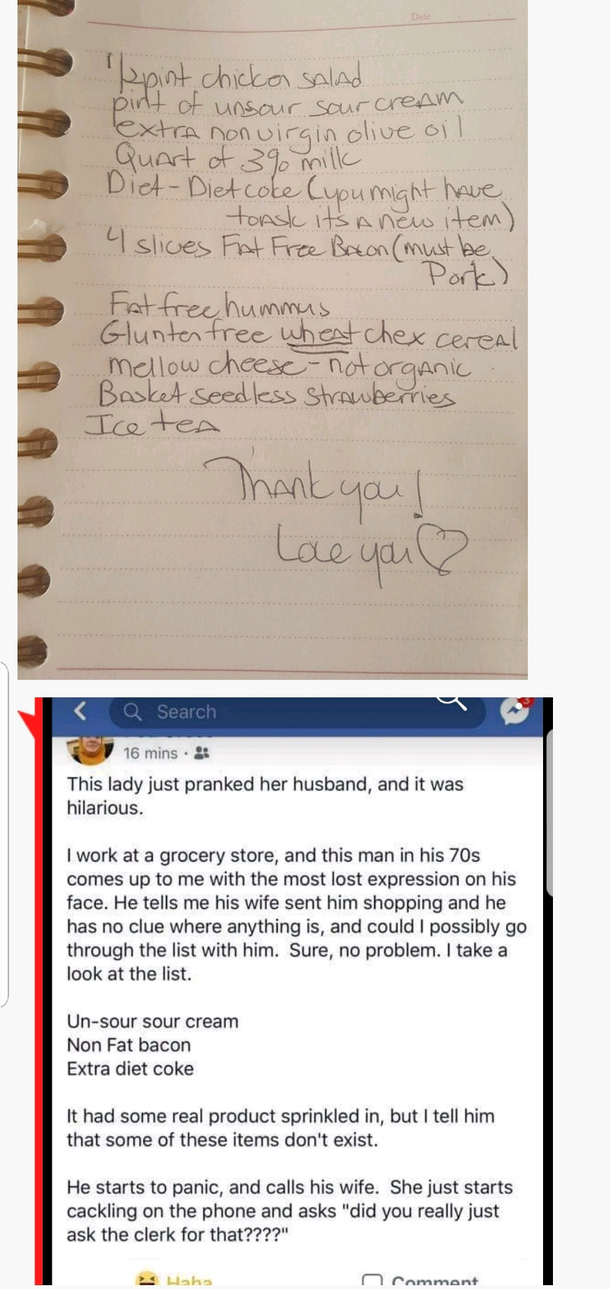 Date
1/2 pint chicken salad
pint of unsour sour cream
extra non virgin olive oil
Quart of 3% milk
Diet-Diet coke (you might have
to ask its a new item)
4 slives Fat Free Bacon (must be
Pork)
Fat free hummus
Glunten free wheat chex cereal
mellow cheese - not organic
Basket seedless strawberries
Ice tea
Thank you!
Love you
Search
16 mins
This lady just pranked her husband, and it was
hilarious.
I work at a grocery store, and this man in his 70s
comes up to me with the most lost expression on his
face. He tells me his wife sent him shopping and he
has no clue where anything is, and could I possibly go
through the list with him. Sure, no problem. I take a
look at the list.
Un-sour sour cream
Non Fat bacon
Extra diet coke
It had some real product sprinkled in, but I tell him
that some of these items don't exist.
He starts to panic, and calls his wife. She just starts
cackling on the phone and asks "did you really just
ask the clerk for that????"
Haha Comment